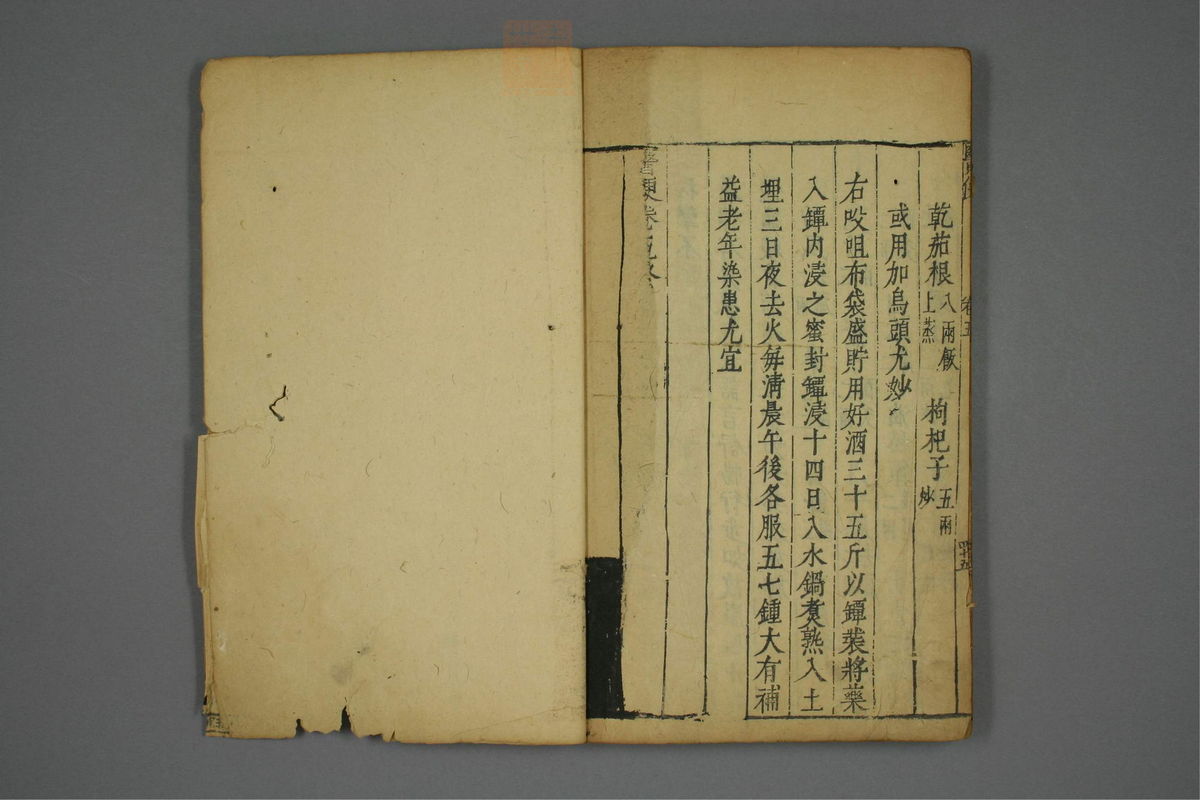 卷五
四十五
乾茄根八兩飯上蒸 枸杞子五兩炒
或用加烏頭尤妙
右㕮咀布袋盛貯用好酒三十五斤以罈裝將藥
入罈内浸之蜜封罈浸十四日入水鍋煑熟入土
埋三日夜去火每清晨午後各服五七鍾大有補
益老年染患尤宜